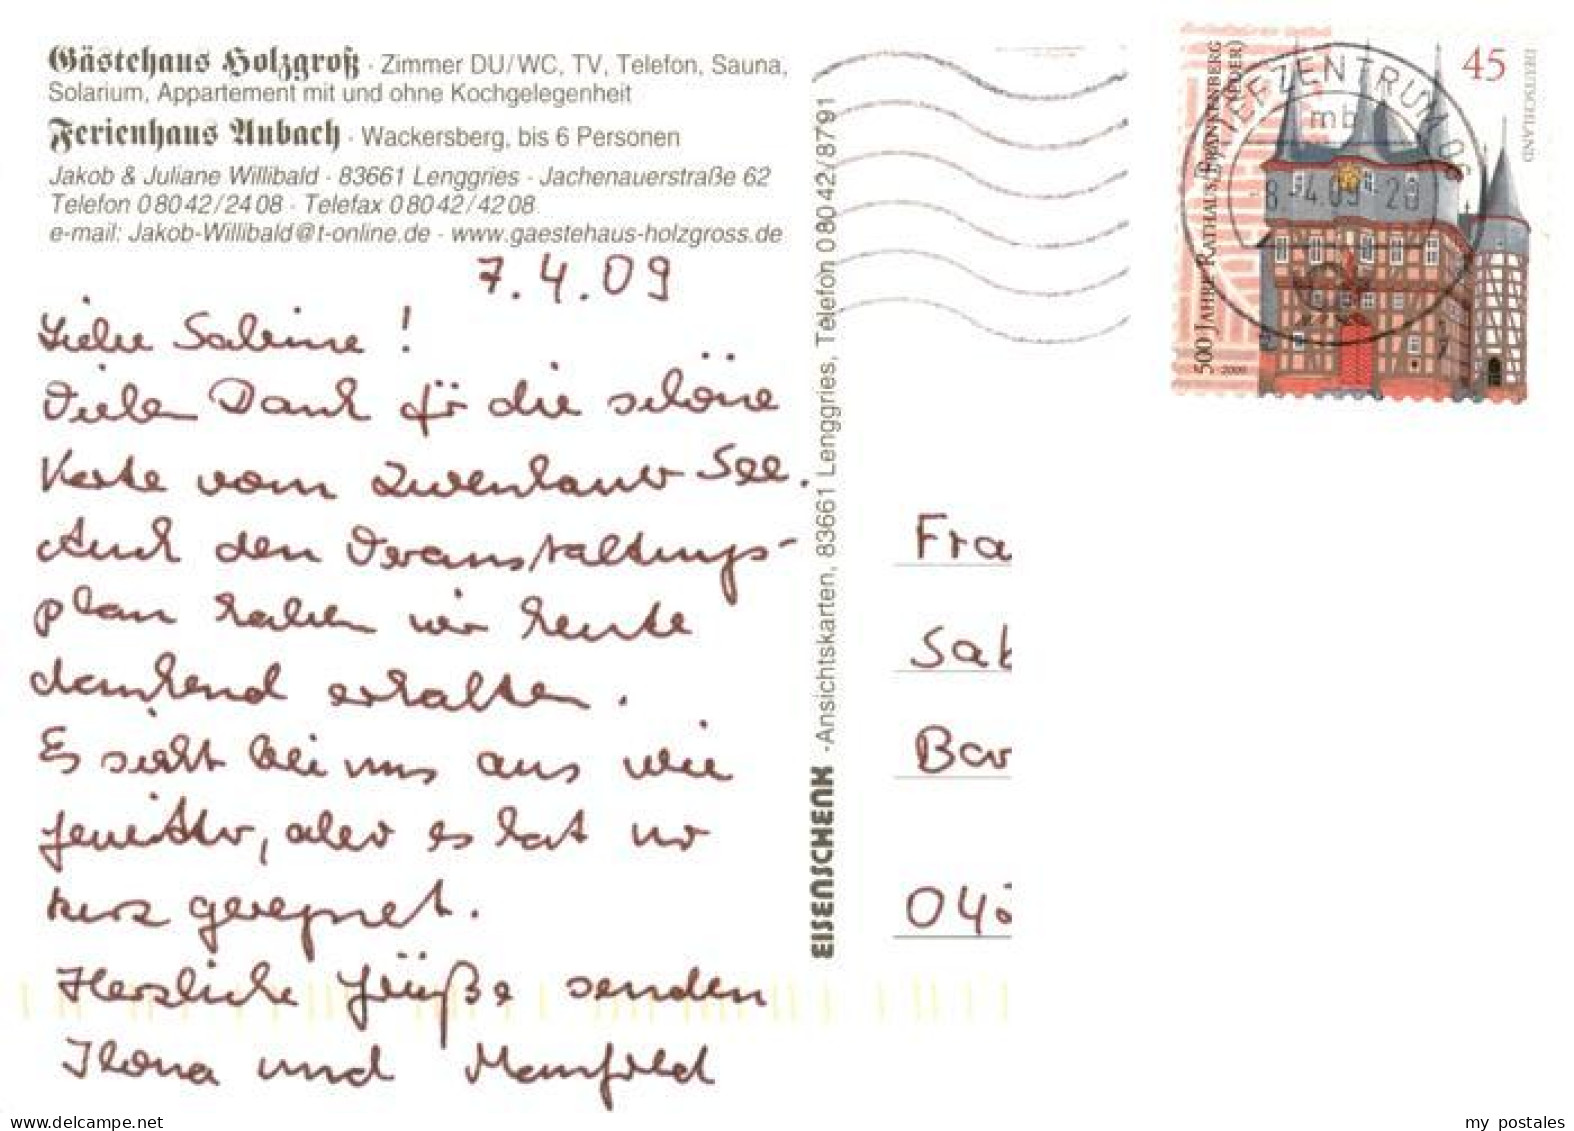 Gästehaus Holzgroß · Zimmer DU/WC, TV, Telefon, Sauna,
Solarium, Appartement mit und ohne Kochgelegenheit
Ferienhaus Aubach · Wackersberg, bis 6 Personen
Jakob & Juliane Willibald · 83661 Lenggries · Jachenauerstraße 62
Telefon 0 80 42 / 24 08 · Telefax 0 80 42 / 42 08
e-mail: Jakob-Willibald@t-online.de · www.gaestehaus-holzgross.de
7.4.09
Liebe Sabine!
Vielen Dank für die schöne
Karte vom Zwenkauer See.
Auch den Veranstaltungs-
plan haben wir heute
dankend erhalten.
Es sieht bei uns aus wie
Gewitter, aber es hat nur
kurz geregnet.
Herzliche Grüße senden
Ilona und Manfred
EISENSCHENK -Ansichtskarten, 83661 Lenggries, Telefon 0 80 42 / 87 91
500 JAHRE RATHAUS FRANKENBERG
(EDER)
45
DEUTSCHLAND
2009
BRIEFZENTRUM
mb
8.-4.09 20
Fra
Sab
Bor
04
my postales